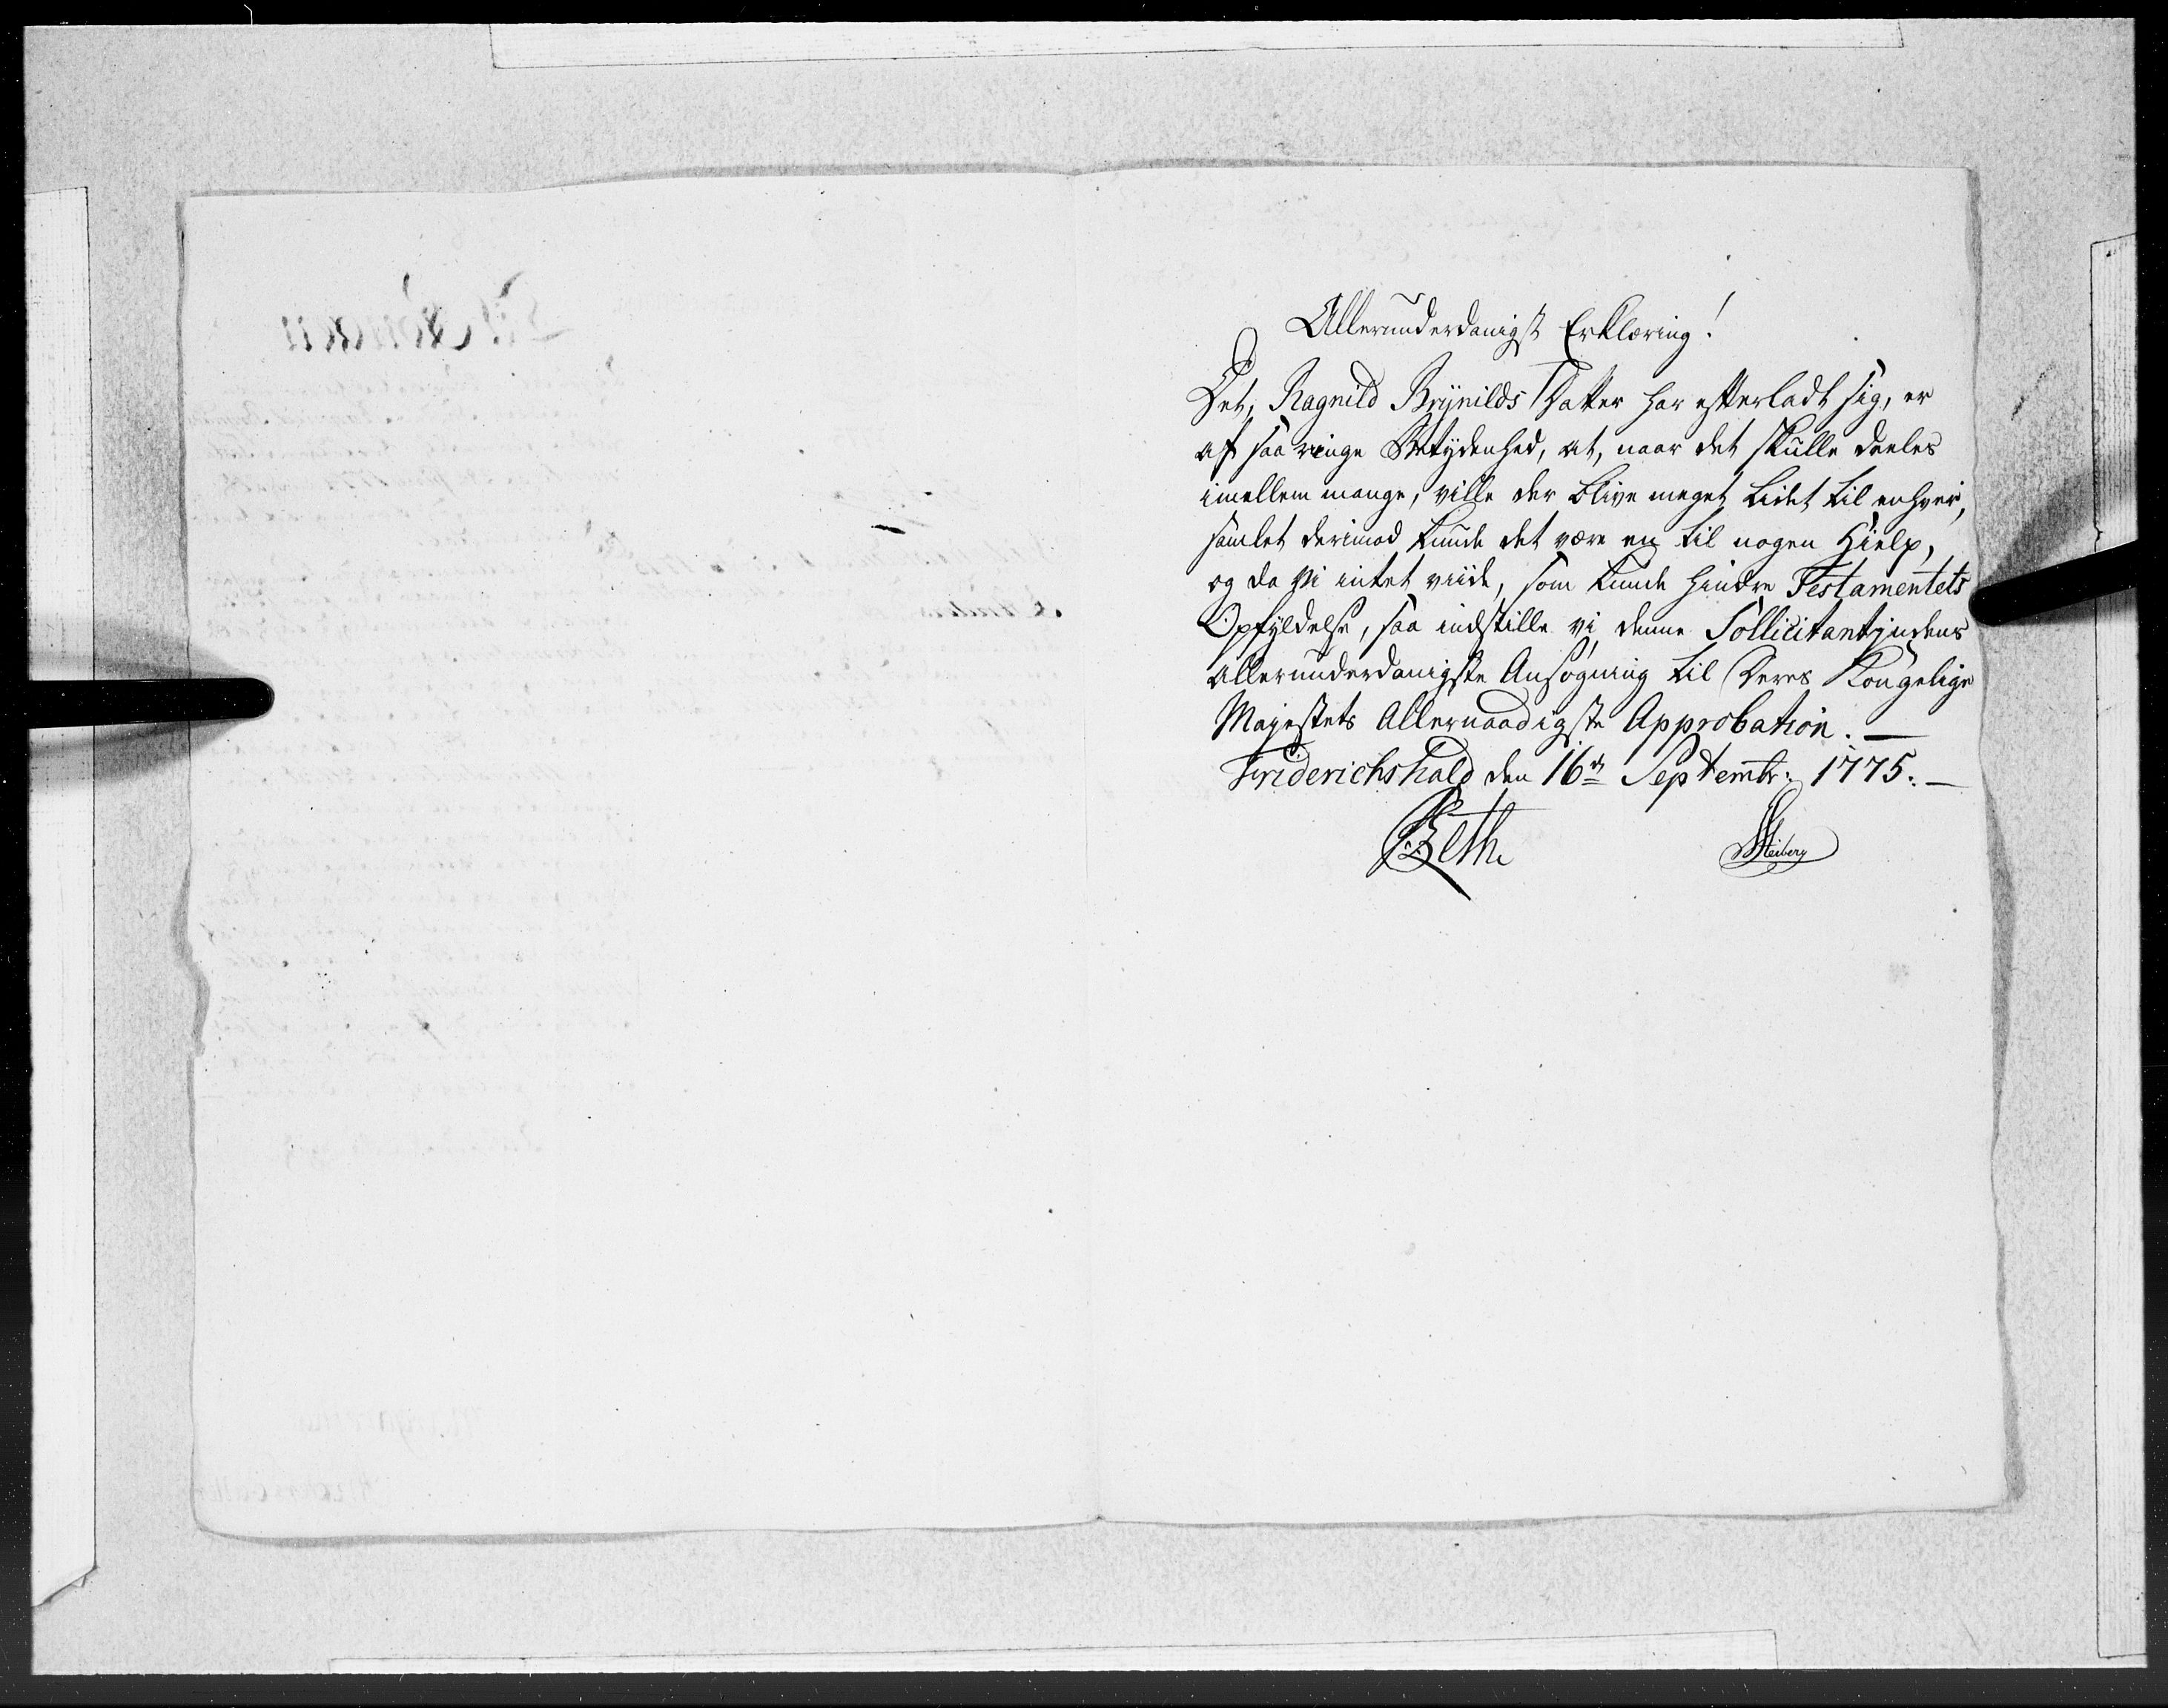 Allerunderdanigst Erklæring!
Det, Ragnild Brÿnilds Datter har efterladt sig, er
af saa ringe Betydenhed, at, naar det skulle deeles
imellem mange, ville der blive meget lidet til enhver,
samlet derimod kunde det være en til nogen Hielp,
og da vi intet viide, som kunde hindre Testamentets
Opfyldelse, saa indstille vi denne Sollicitantindens
allerunderdanigste Ansøgning til Deres Kongelige
Majestets Allernaadigste Approbation. —
Friderichshald den 16de Septembr: 1775. —
Heiberg